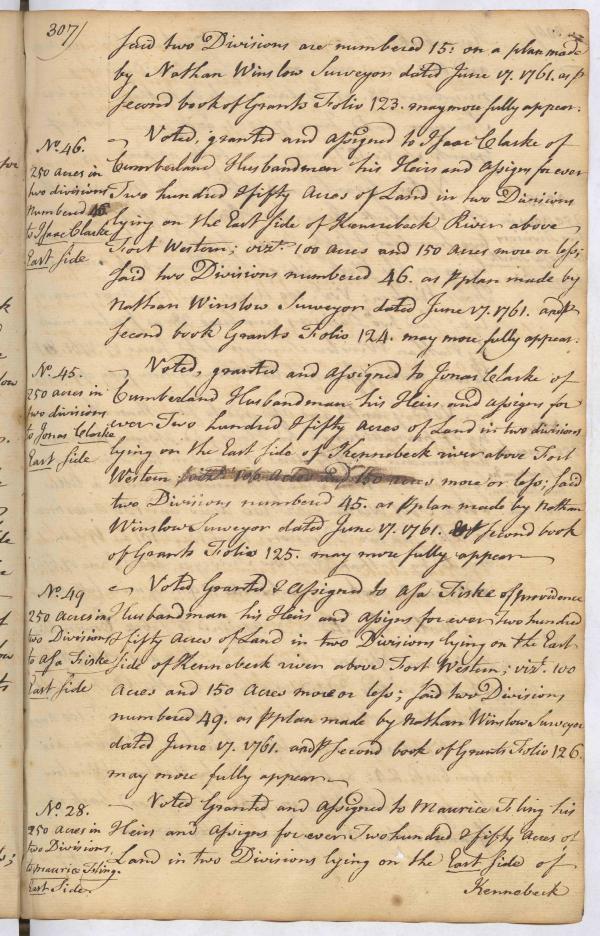 307/
said two Divisions are numbered 15: on a plan made
by Nathan Winslow Surveyor dated June 17. 1761. as p
second book of Grants Folio 123. may more fully appear.
No. 46.
250 acres in
two divisions
numbered 46
to Isaac Clarke
East Side
Voted, granted and assigned to Isaac Clarke of
Cumberland Husbandman his Heirs and assigns for ever
Two hundred & fifty Acres of Land in two Divisions
lying on the East Side of Kennebeck River above
Fort Western; vizt. 100 acres and 150 acres more or less;
said two Divisions numbered 46. as p plan made by
Nathan Winslow Surveyor dated June 17. 1761. and p
second book Grants Folio 124. may more fully appear.
No. 45.
250 acres in
two divisions
to Jonas Clarke
East Side
Voted, granted and assigned to Jonas Clarke of
Cumberland Husbandman his Heirs and assigns for
ever Two hundred & fifty acres of Land in two divisions
lying on the East side of Kennebeck river above Fort
Western vizt. 100 acres and 150 acres more or less; said
two Divisions numbered 45. as p plan made by Nathan
Winslow Surveyor dated June 17. 1761. & p second book
of Grants Folio 125. may more fully appear
No. 49
250 acres in
two Divisions
to Asa Fiske
East Side
Voted Granted & assigned to Asa Fiske of providence
Husbandman his Heirs and assigns for ever two hundred
& fifty acres of Land in two Divisions lying on the East
side of Kennebeck river above Fort Western; vizt. 100
acres and 150 acres more or less; said two Divisions
numbered 49. as p plan made by Nathan Winslow Surveyor
dated June 17. 1761. and p second book of Grants Folio 126.
may more fully appear
No. 28.
250 acres in
two Divisions
to Maurice Fling.
East Side.
Voted Granted and assigned to Maurice Fling his
Heirs and Assigns for ever Two hundred & fifty acres of
Land in two Divisions lying on the East side of
Kennebeck